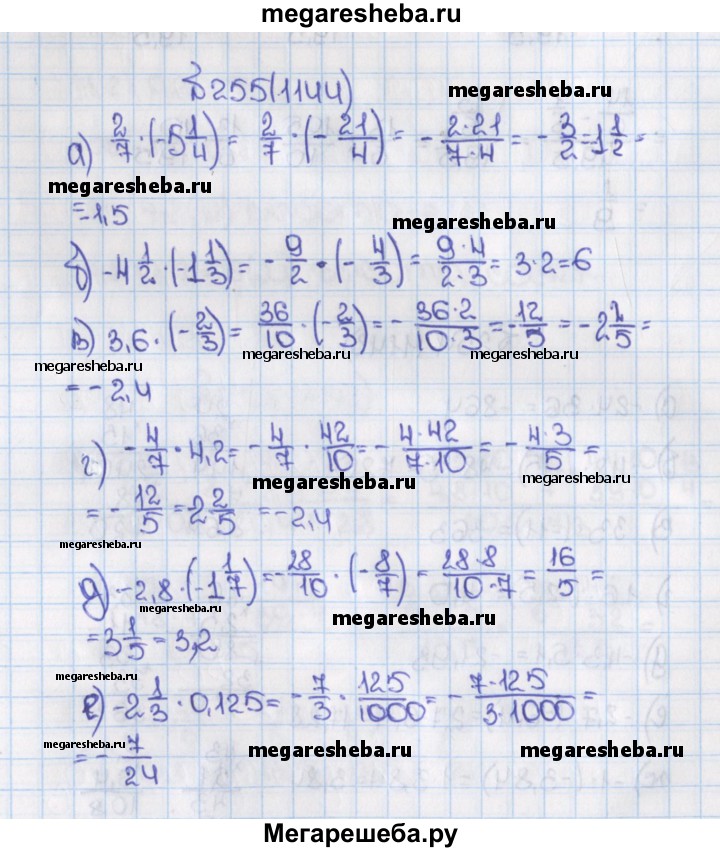 megaresheba.ru
№ 255(1144)
megaresheba.ru
а) 2/7 · (-5 1/4) = 2/7 · (- 21/4) = - 2·21/7·4 = - 3/2 = 1 1/2 =
megaresheba.ru
= -1,5
megaresheba.ru
б) -4 1/2 · (-1 1/3) = - 9/2 · (- 4/3) = 9·4/2·3 = 3·2 = 6
в) 3,6 · (- 2/3) = 36/10 · (- 2/3) = - 36·2/10·3 = - 12/5 = -2 2/5 =
megaresheba.ru megaresheba.ru megaresheba.ru
= - 2,4
г) - 4/7 · 4,2 = - 4/7 · 42/10 = - 4·42/7·10 = - 4·3/5 =
megaresheba.ru megaresheba.ru
= - 12/5 = 2 2/5 = -2,4
megaresheba.ru
д) -2,8 · (-1 1/7) = - 28/10 · (- 8/7) = 28·8/10·7 = 16/5 =
megaresheba.ru megaresheba.ru
= 3 1/5 = 3,2
е) -2 1/3 · 0,125 = - 7/3 · 125/1000 = - 7·125/3·1000 =
megaresheba.ru megaresheba.ru megaresheba.ru
= - 7/24
Мегарешеба.ру